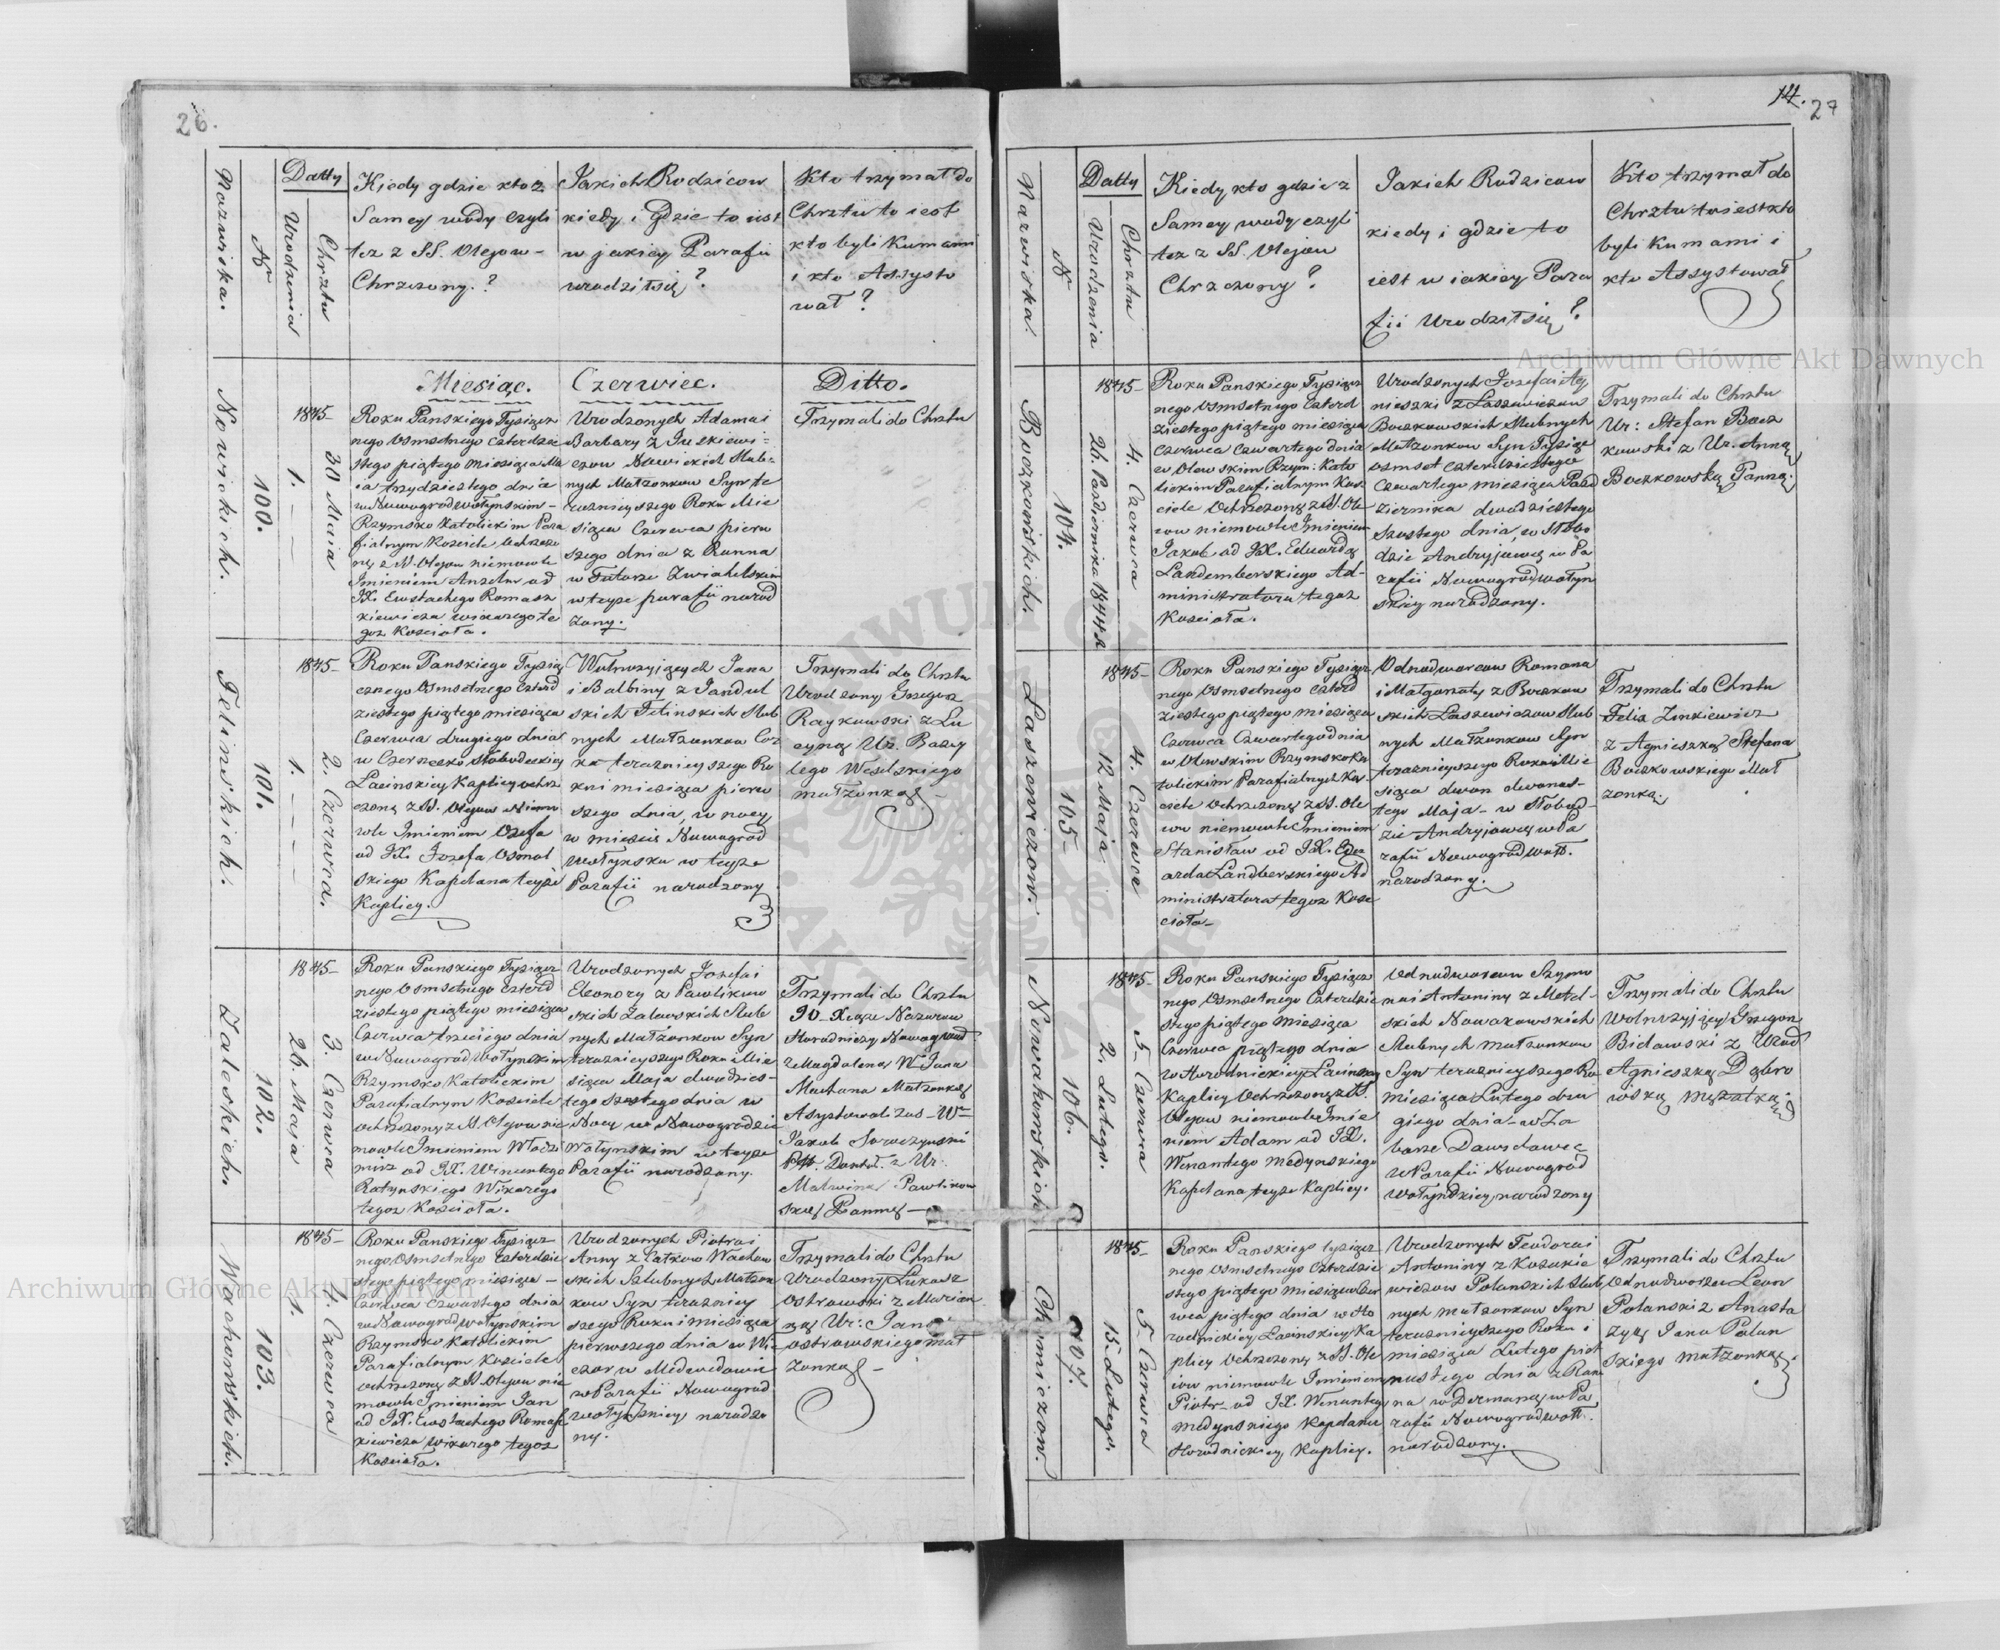 26.
Nazwiska.
N
Datty
Urodzenia
Chrztu
Kiedy gdzie kto z
Samey wody czyli
tez z SS. Olegow-
Chrzczony.?
Jakich Rodzicow
kiedy i gdzie to iest
w jakiey Parafii
urodził się?
Kto trzymał do
Chrztu to iest
kto byli Kumami
i kto Assysto
wał?
Miesiąc. Czerwiec. Ditto.
Nowickich.
100.
1845-
1.
30 Maia
Roku Panskiego Tysiącz
nego Osmsetnego czterdzie
stego piątego miesiąca Ma
ia trzydziestego dnia
w Nowogrodwołynskim-
Rzymsko Katolickim Para
fialnym Kosciele ochrzczo
ny z SS. Olejow niemowle
Imieniem Anzelm od
JX. Eustachego Romasz
kiewicza wikarego te
goz Koscioła.
Urodzonych Adama i
Barbary z Juszkiewi-
czow Nowickich Slub-
nych Małzonkow Syn te
raznieyszego Roku Mie
siąca Czerwca pierw
szego dnia z Ranna
w Futorze Zwiahelskim
w teyze parafii narod
zony.
Trzymali do Chrztu
Felinskich.
101.
1845-
1.
2. Czerwca.
Roku Panskiego Tysią
cznego Osmsetnego czterd
ziestego piątego miesiąca
Czerwca drugiego dnia
w Czerwono Słobodeckiey
Łacinskiey Kaplicy ochrz
czoną z SS. Olejow Niemo
wle Imieniem Ozefa
od JX. Jozefa Osmol
skiego Kapelana teyże
Kaplicy.
Wolnozyjących Jana
i Balbiny z Jandul
skich Felinskich Slub
nych Małzonkow Cor
ka teraznieyszego Ro
ku i miesiąca pierw
szego dnia, w nocy
w miescie Nowogrod
wołynsku w teyze
Parafii narodzony
Trzymali do Chrztu
Urodzony Grzegorz
Raykowski z Lu
cyną Ur. Bazy
lego Weselskiego
małzonką-
Zaleskich.
102.
1845-
26. Maja
3. Czerwca
Roku Panskiego Tysiącz
nego Osmsetnego czterd
ziestego piątego miesiąca
Czerwca trzeciego dnia
w Nowogrodwołynskim
Rzymsko Katolickim
Parafialnym Kosciele
ochrzczony z SS. Olejow nie
mowle Imieniem Włodzi
mirz od JX. Wincentego
Ratynskiego Wikarego
tegoz Kosciola.
Urodzonych Jozefa i
Eleonory z Pawlikow
skich Zaleskich Slub
nych Małzonkow Syn
teraznieyszego Roku Mie
siąca Maja dwudzies-
tego szostego dnia w
Nocy w Nowogrodzie
Wołynskim w teyze
Parafii narodzony.
Trzymali do Chrztu
Horodniczy Nowogrod
z Magdaleną Wº Jana
Machana Małzonką
Asystowali zas - Wº
Jakub
Doktor z Ur.
Malwiną Pawlikow
ską Panną-
Wachowskich.
103.
1845-
1.
4. Czerwca
Roku Panskiego Tysiącz
nego Osmsetnego czterdzie
stego piątego miesiąca -
Czerwca czwartego dnia
w Nowogrodwołynskim
Rzymsko Katolickim
Parafialnym Kosciele
ochrzczony z SS. Olejow nie
mowle Imieniem Jan
od JX. Eustachego Romasz
kiewicza wikarego tegoz
Kościoła.
Urodzonych Piotra i
Anny z Łatkow Wachow
skich Szlubnych Małzon
kow Syn terazniey
szego Roku i miesiąca
pierwszego dnia w Wie
czor w Medwedowie
w Parafii Nowogrod
wołynskiey narodzo
ny.
Trzymali do Chrztu
Urodzony Łukasz
Ostrowski z Marian
ną Ur: Jana
Ostrowskiego mał
zonką-
14. 27
Nazwiska.
N
Datty
Urodzenia
Chrztu
Kiedy kto gdzie z
Samey wody czyli
tez z SS. Olejow
Chrzczony?
Jakich Rodzicow
kiedy i gdzie to
iest w iakiey Para
fii Urodził się?
Kto trzymał do
Chrztu to iest kto
byli Kumami i
kto Assystował
Boczkowskich.
104.
1845-
26. Pazdiernika 1844 r.
4. Czerwca
Roku Panskiego Tysiącz
nego Osmsetnego czterd
ziestego piątego miesiąca
czerwca czwartego dnia
w Olewskim Rzym. Kato
lickim Parafialnym Kos
ciele Ochrzczony z SS. Ole
iow niemowle Imieniem
Jakub od JX. Edwarda
Landemberskiego Ad-
ministratora tegoz
Kosciola.
Urodzonych Jozefa i Ag
nieszki z Laszewiczow
Boczkowskich Slubnych
Małzonkow Syn Tysiąc
osmset czterdziestego
czwartego miesiąca Pazd
ziernika dwudziestego
szostego dnia, w Słobo
dzie Andryjowey w Pa
rafii Nowogrodwołyn
skiey narodzony.
Trzymali do Chrztu
Ur: Stefan Bocz
kowski z Ur. Anną
Boczkowską Panną.
Laszewiczow.
105-
1845-
12 Maja
4. Czerwca
Roku Panskiego Tysiącz
nego Osmsetnego czterd
ziestego piątego miesiąca
Czerwca Czwartego dnia
w Olewskim Rzymsko Ka
tolickim Parafialnym Kos
ciele Ochrzczony z SS. Ole
iow niemowle Imieniem
Stanisław od JX. Edw
arda Landberskiego Ad
ministratora tegoz Kosc
cioła-
Odnodworcow Romana
i Małgorzaty z Boczkow
skich Laszewiczow Slub
nych Małzonkow Syn
teraznieyszego Roku Mie
siąca dwon dwanas-
tego Maja - w Słobod-
zie Andryjowey w Pa
rafii Nowogrodwołł.
narodzony.
Trzymali do Chrztu
Felix Zinkiewicz
z Agnieszką Stefana
Boczkowskiego Mał
zonką.
Nowakowskich
106.
1845-
2. Lutego.
5- Czerwca
Roku Panskiego Tysiącz
nego Osmsetnego Czterdzie
stego piątego Miesiąca
Czerwca piątego dnia
w Horodnickiey Łacinskiey
Kaplicy Ochrzczony z SS.
Olejow niemowle Imie
niem Adam od JX.
Wenantego Medynskiego
Kapelana teyze Kaplicy.
Odnodworcow Szymo
na i Antoniny z Metel-
skich Nowakowskich
Slubnych małzonkow
Syn teraznieyszego Ro
ku Miesiąca Lutego dru
giego dnia - w Za
borze Dawidowce
w Parafii Nowogrod
wołynskiey narodzony
Trzymali do Chrztu
Wolnozyjący Grzegorz
Bielawski z Urod
Agnieszką Dąbro
wską mężatką
Chomiczow.
107.
1845-
15. Lutego.
5- Czerwca
Roku Panskiego tysiącz
nego Osmsetnego Czterdzie
stego piątego Miesiąca Czer
wca piątego dnia w Ho
rodnickiey Łacinskiey Ka
plicy Ochrzczony z SS. Ole
iow niemowle Imieniem
Piotr- od JX. Wenantego
Medynskiego Kapelana
Horodnickiey Kaplicy.
Urodzonych Teodora i
Antoniny z Kozakie
wiczow Polanskich Slub
nych małzonkow Syn
teraznieyszego Roku i
miesiąca Lutego piet
nastego dnia z Ran
na w Dermaney w Pa
rafii Nowogrodwołł.
narodzony.
Trzymali do Chrztu
Odnodworzec Leon
Polanski z Anasta
zyą Jana Polan
skiego małzonką.
Archiwum Główne Akt Dawnych
Archiwum Główne Akt Dawnych